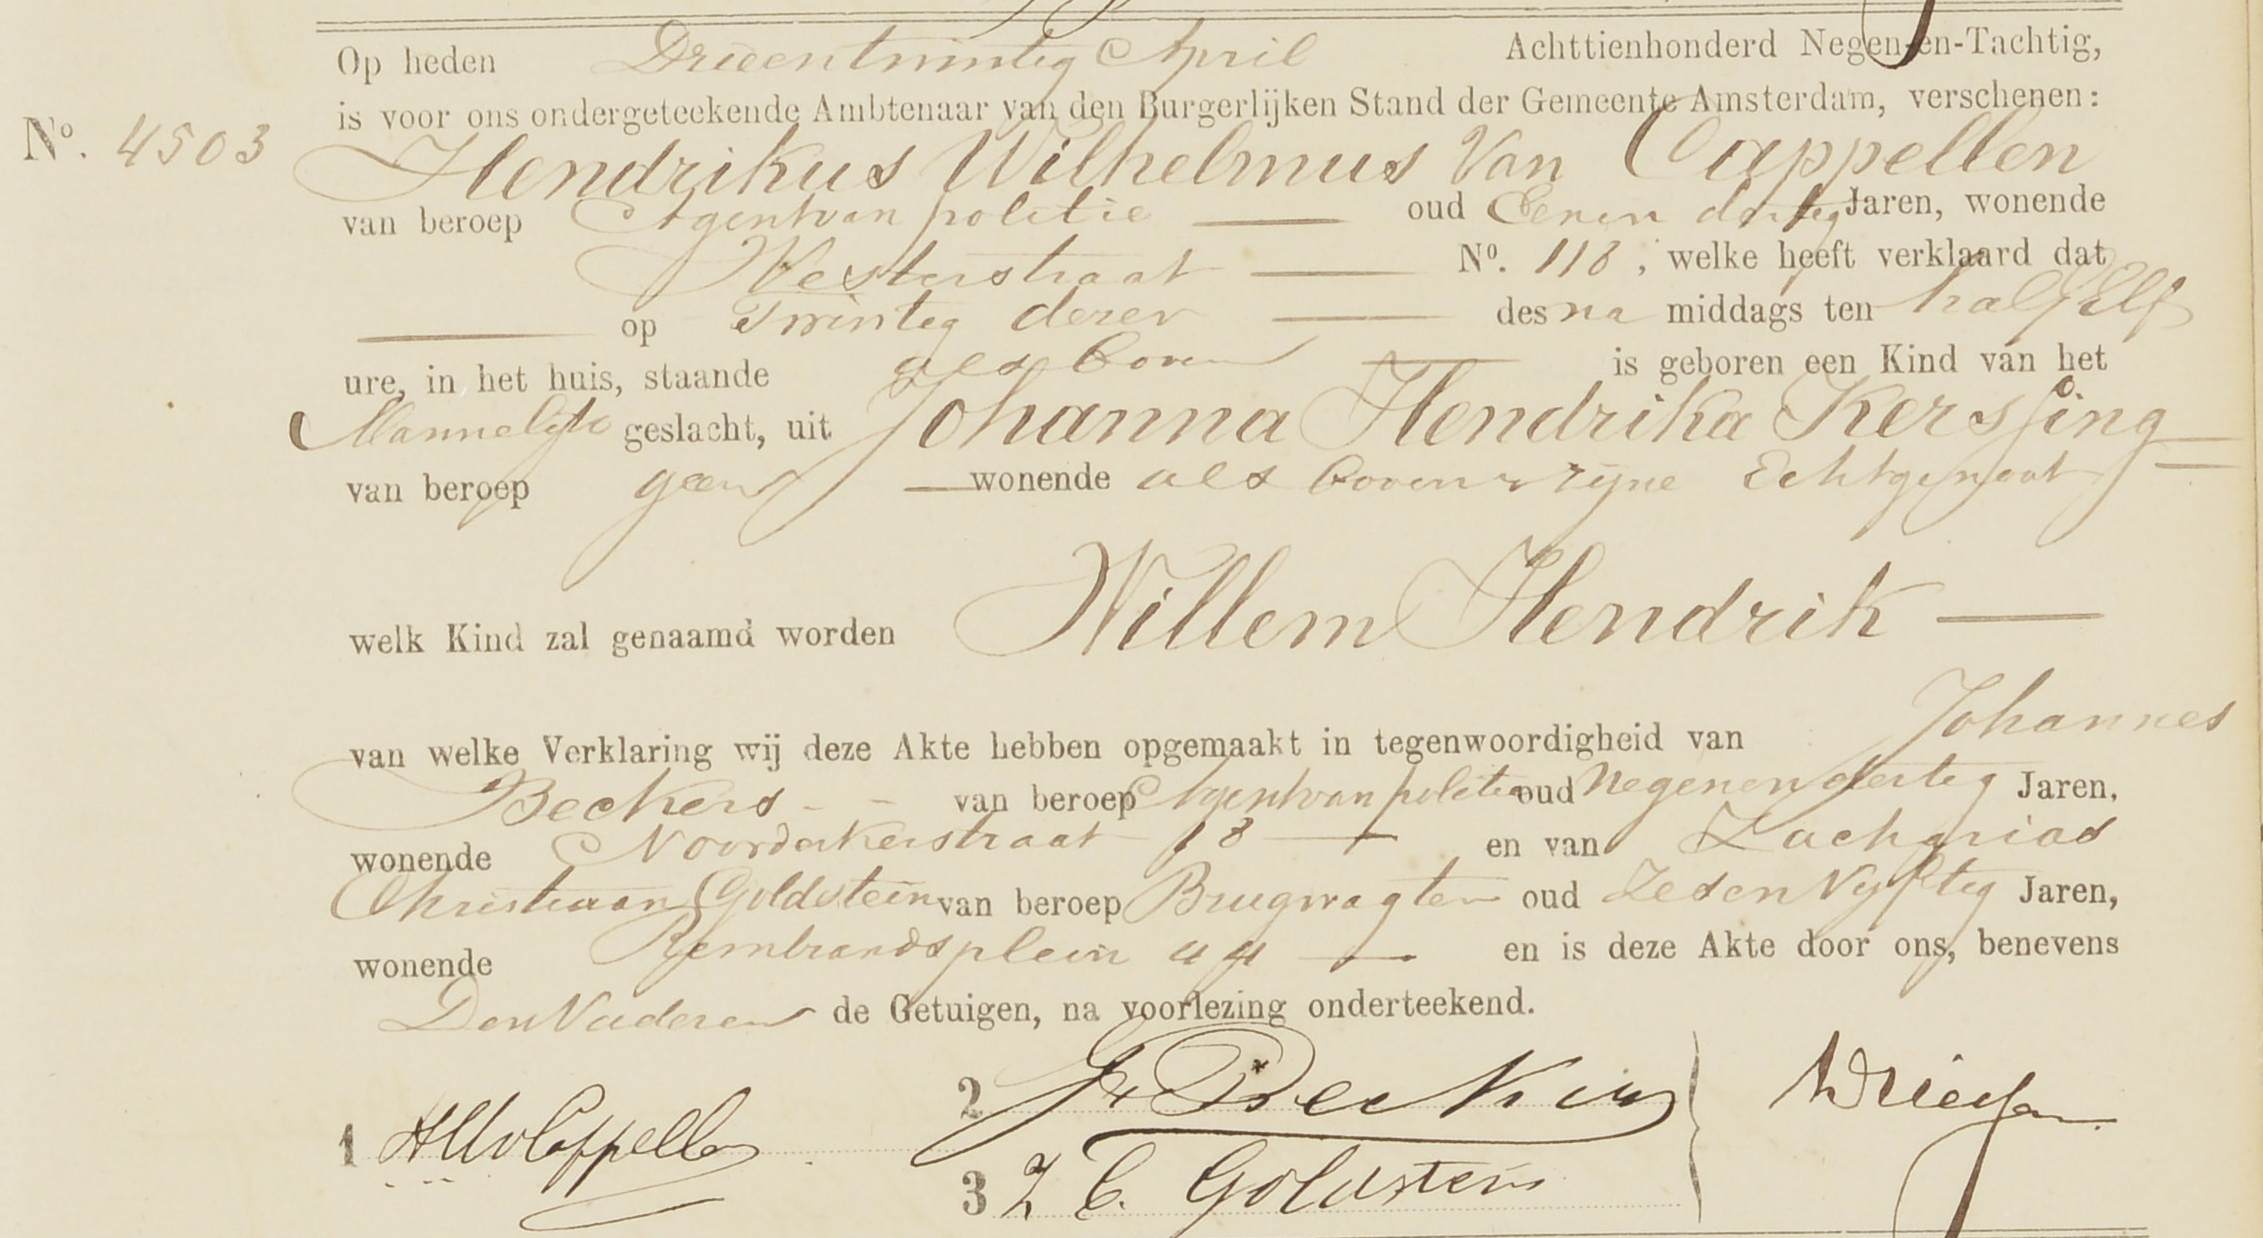 Op heden Drieentwintig April Achttienhonderd Negen-en-Tachtig,
is voor ons ondergeteekende Ambtenaar van den Burgerlijken Stand der Gemeente Amsterdam, verschenen:
No. 4503 Hendrikus Wilhelmus Van Cappellen
van beroep Agent van politie oud Eenen dertig Jaren, wonende
Westerstraat No. 118, welke heeft verklaard dat
op Twinteg dezer des na middags ten half Elf
ure, in het huis, staande als boven is geboren een Kind van het
Mannelijk geslacht, uit Johanna Hendrika Kerssing
van beroep geen wonende als boven zijne Echtgenoot
welk Kind zal genaamd worden Willem Hendrik
van welke Verklaring wij deze Akte hebben opgemaakt in tegenwoordigheid van Johannes
Beckers van beroep Agent van politie oud Negenendertig Jaren,
wonende Noorderkerstraat 18 en van Zacharias
Christiaan Goldstein van beroep Brugwagter oud Zesen Vyftig Jaren,
wonende Rembrandsplein 44 en is deze Akte door ons, benevens
Den Vader de Getuigen, na voorlezing onderteekend.
1 HWvCappellen 2 J. Beckers
3 Z C. Goldstein